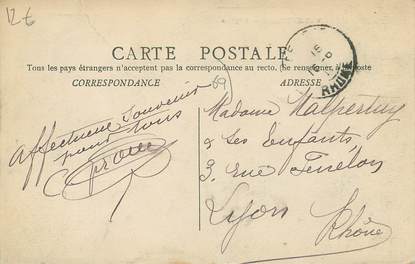 12 €
CARTE POSTALE
Tous les pays étrangers n'acceptent pas la correspondance au recto. (Se renseigner à la Poste
CORRESPONDANCE
ADRESSE
RHONE
69
Affectueux souvenir
pour tous
Madame Malpertuy
& Ses Enfants
3, rue Fénélon
Lyon
Rhône